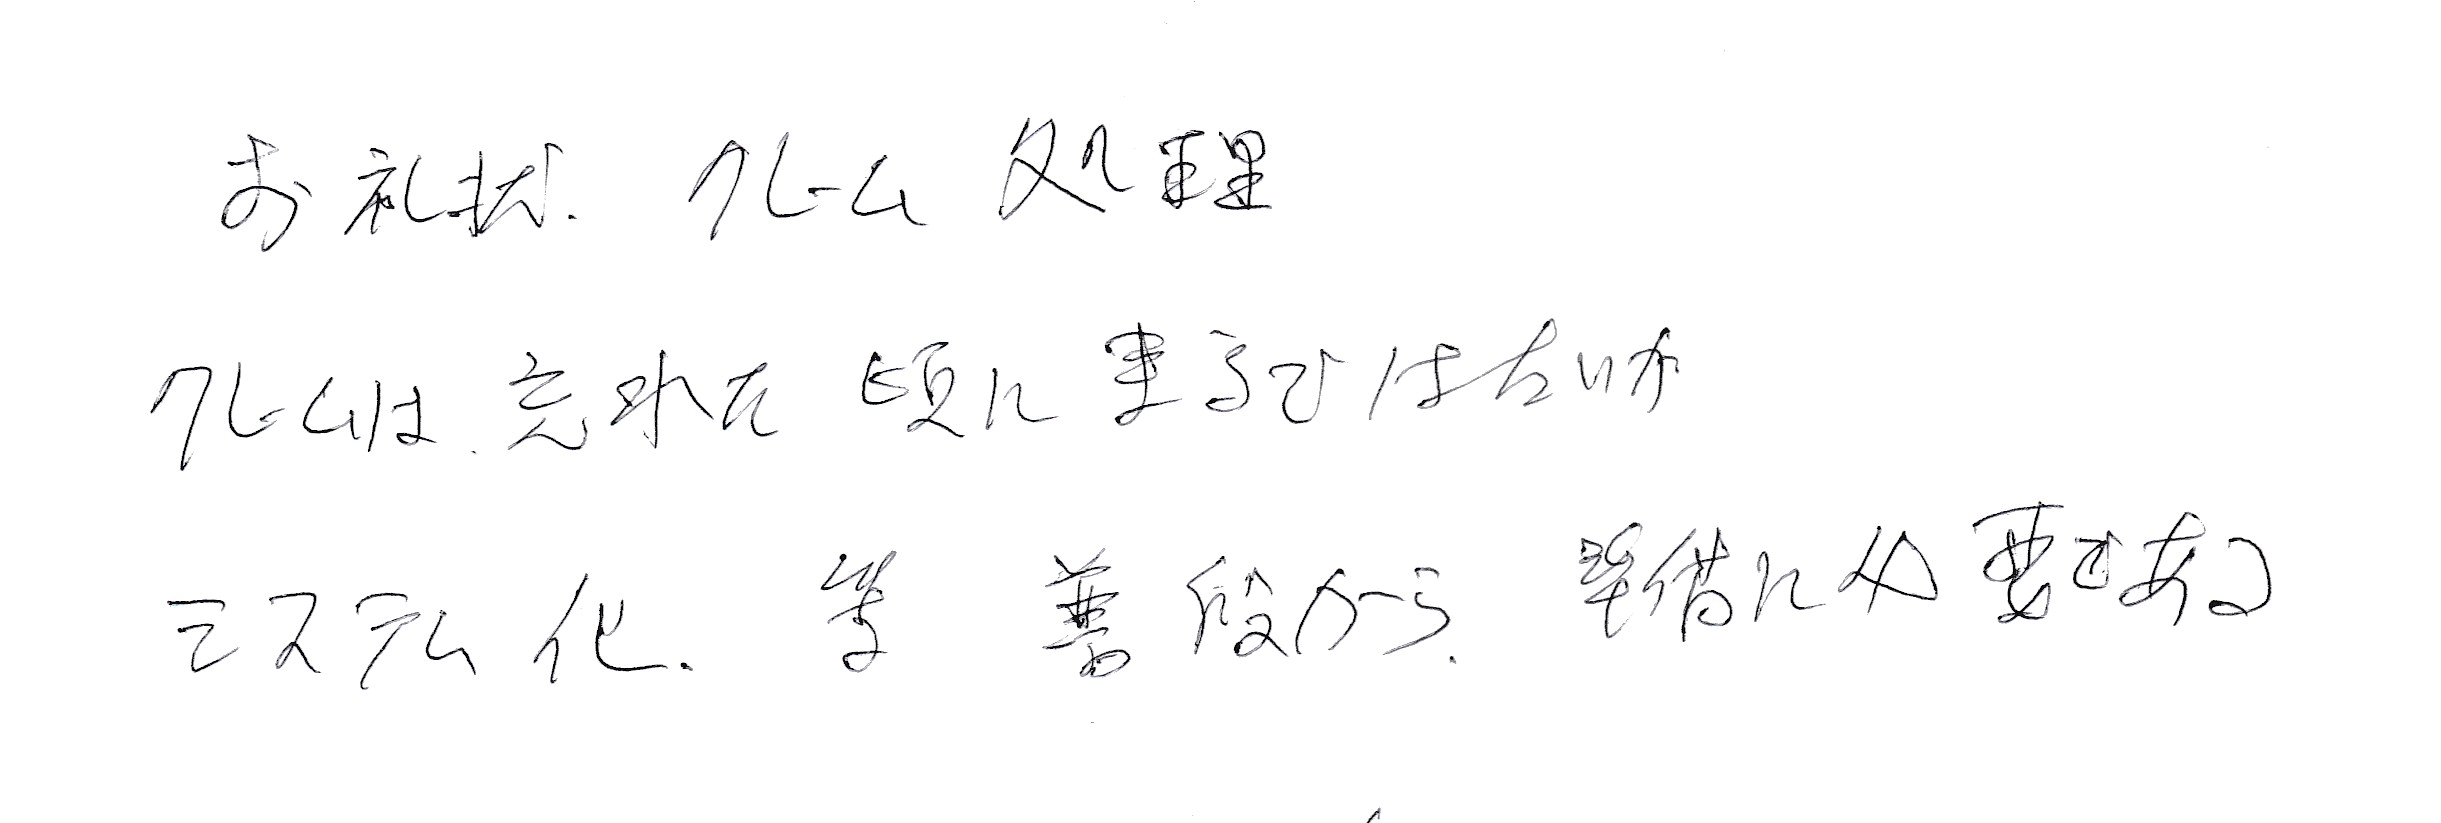 お礼状、クレーム処理
クレームは、忘れた頃に来るではないか
システム化、等 普段から、準備に必要である